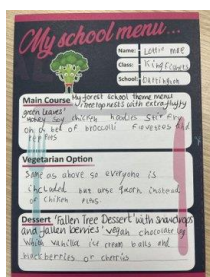 My school menu...
Name: Lottie Mae
Class:
School:
Main Course My forest school theme menu
nests with extra fluffy
green leaves'
honey soy chicken noodles stir fry
on a bed of broccoli
Vegetarian Option
Same as above so everyone is
included but use quorn instead
of chicken
Dessert 'Fallen Tree Dessert' with snowdrops
and fallen berries' vegan chocolate
with vanilla ice cream balls and
blackberries or cherries